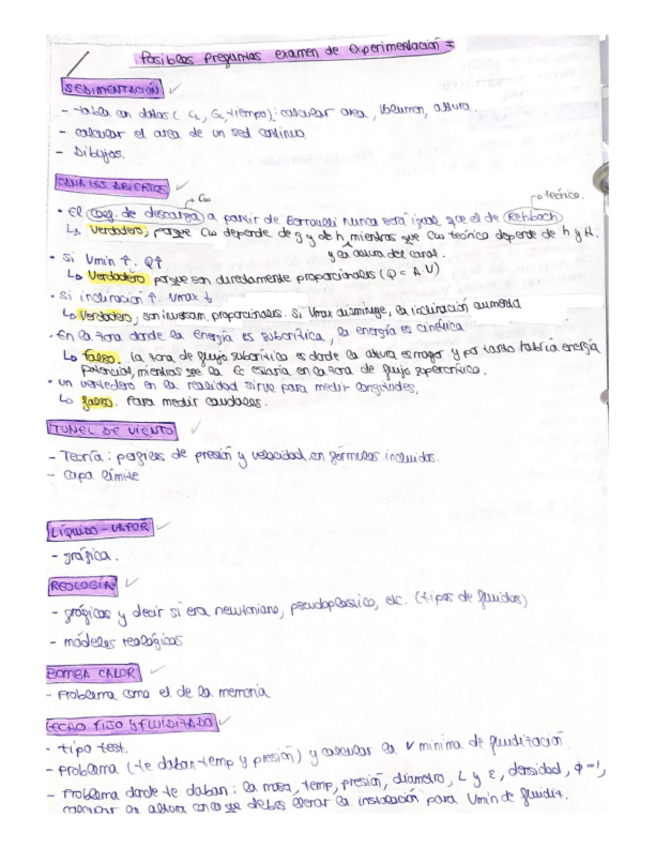 Posibles Preguntas examen de Experimentación =
SEDIMENTACIÓN
- tabla con datos ( , tiempo): calcular area, volumen, altura.
- calcular el area de un sed continuo.
- Dibujos.
CANALES ABIERTOS
→ Cw → teórico.
• El coef. de descarga a partir de Bernoulli nunca será igual que el de Rehbock
↳ Verdadero, porque Cw depende de g y de h, mientras que Cw teórico depende de h y H.
y la altura del canal.
• Si Vmin ↑, Q↑
↳ Verdadero porque son directamente proporcionales (Q = A·V)
• Si inclinación ↑, Vmax ↓
↳ Verdadero, son inversam. proporcionales. Si Vmax disminuye, la inclinación aumenta
• En la zona donde la Energía es subcrítica, la energía es cinética
↳ falso. la zona de flujo subcrítico es donde la altura es mayor y por tanto habría energía
potencial, mientras que la Ec estaría en la zona de flujo supercrítico.
• un vertedero en la realidad sirve para medir longitudes.
↳ falso. Para medir caudales.
TUNEL DE VIENTO
- Teoría: perfiles de presión y velocidad con fórmulas incluidas.
- Capa límite
LÍQUIDO - VAPOR
- gráfica.
REOLOGÍA
- gráficas y decir si era newtoniano, pseudoplastico, etc. (tipos de fluidos)
- módelos reológicos
BOMBA CALOR
- Problema como el de la memoria
LECHO FIJO Y FLUIDIZADO
- tipo test.
- problema (te daban temp y presión) y calcular la v mínima de fluidización
- Problema donde te daban: la masa, temp, presión, diametro, L y ε, densidad, φ=1,
calcular la altura con que debes operar la instalación para Vmin de fluidiz.